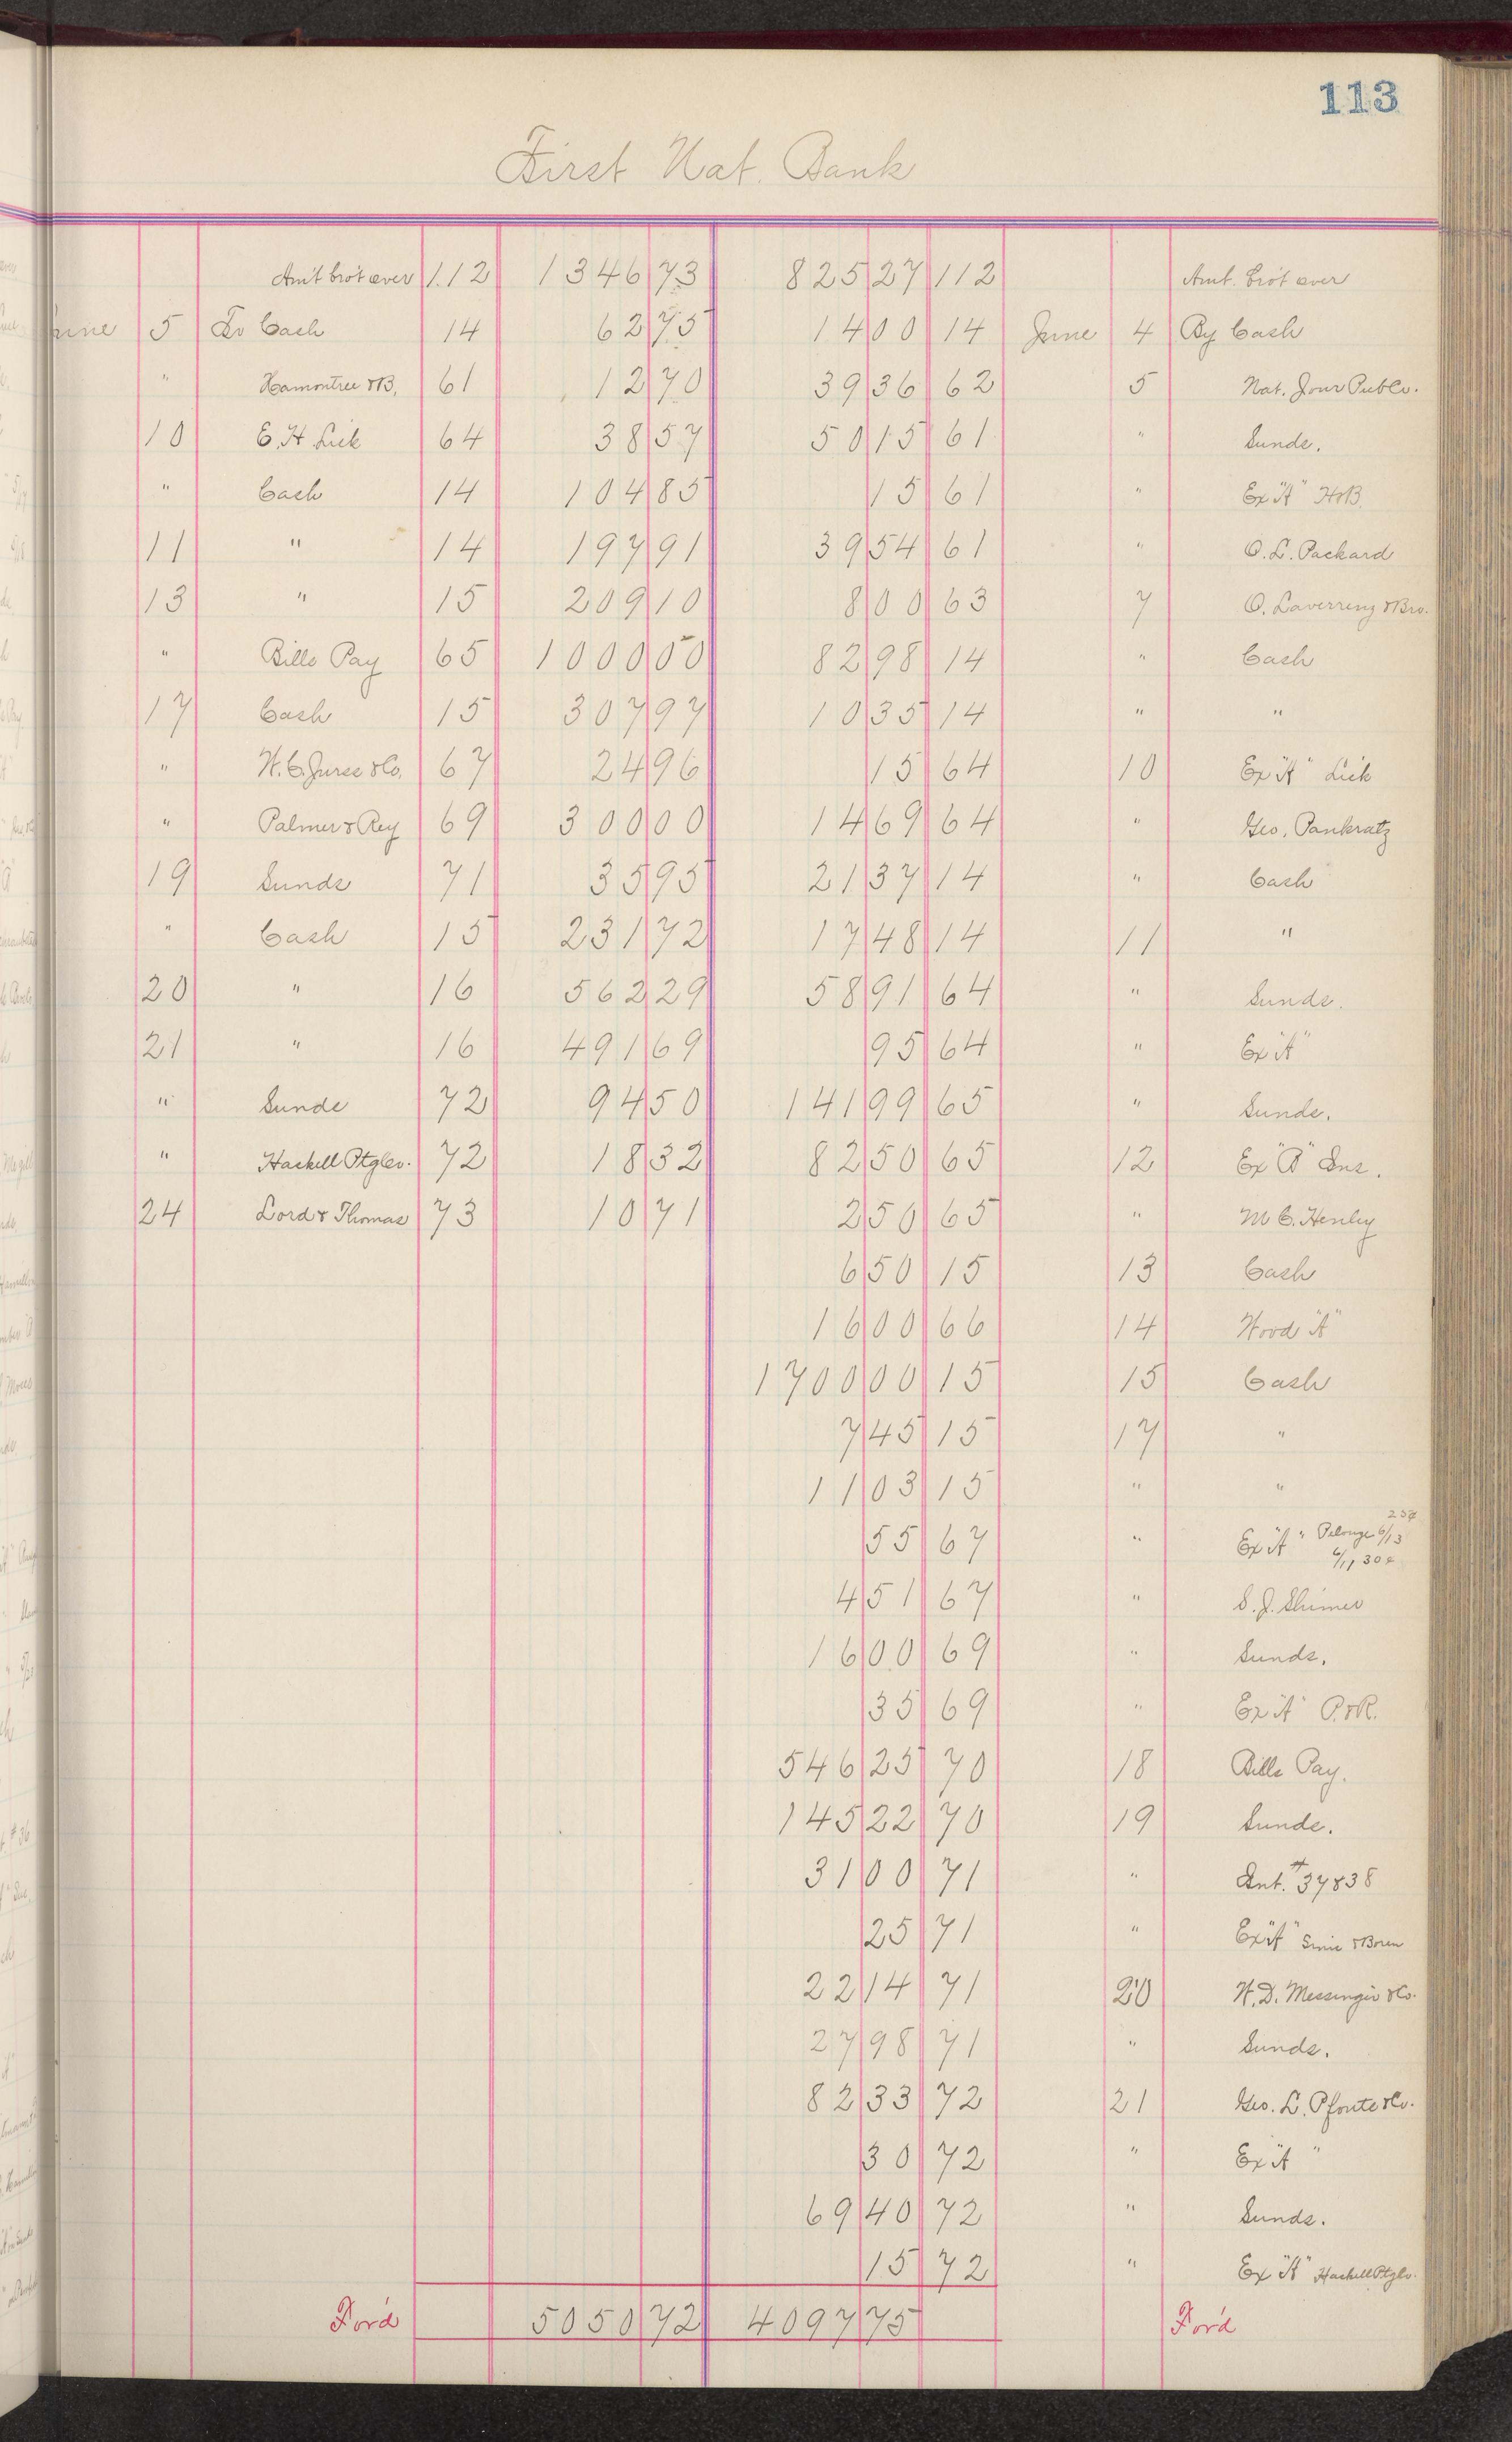 113
First Nat. Bank
Am't bro't over 112 1346 73 825 27 112 Amt. bro't over
June 5 To Cash 14 62 75 14 00 14 June 4 By Cash
" Hamontree & B. 61 12 70 39 36 62 5 Nat. Jour Pub Co.
10 E. H. Lick 64 38 57 50 15 61 " Sunds.
" Cash 14 104 85 15 61 " Ex "A" H&B.
11 " 14 197 91 39 54 61 " O. L. Packard
13 " 15 209 10 8 00 63 7 O. & Bro.
" Bills Pay 65 1000 00 82 98 14 " Cash
17 Cash 15 307 97 10 35 14 " "
" W. C. & Co. 67 24 96 15 64 10 Ex "A" Lick
" Palmer & Rey 69 300 00 14 69 64 " Geo. Pankratz
19 Sunds 71 35 95 21 37 14 " Cash
" Cash 15 231 72 17 48 14 11 "
20 " 16 562 29 58 91 64 " Sunds.
21 " 16 491 69 95 64 " Ex "A"
" Sunds 72 94 50 141 99 65 " Sunds.
" Haskell Ptg Co. 72 18 32 82 50 65 12 Ex "B" Ins.
24 Lord & Thomas 73 10 71 2 50 65 " M C. Henley
6 50 15 13 Cash
16 00 66 14 Wood "A"
1700 00 15 15 Cash
7 45 15 17 "
11 03 15 " "
25¢
55 67 " Ex "A" " Pelouze 6/13
6/11 30¢
4 51 67 " S. J. Shimer
16 00 69 " Sunds.
35 69 " Ex "A" P. & R.
546 25 70 18 Bills Pay.
145 22 70 19 Sunds.
31 00 71 " Int. #37838
25 71 " Ex "A" & Boren
22 14 71 20 W. D. Messinger & Co.
27 98 71 " Sunds.
82 33 72 21 Geo. L. & Co.
30 72 " Ex "A"
69 40 72 " Sunds.
15 72 " Ex "A" Haskell Ptg Co.
For'd 5050 72 4097 75 For'd